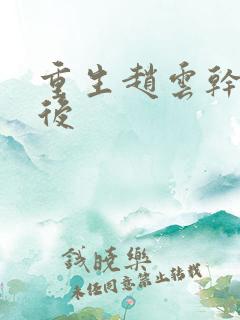 重生趙雲幹
後
錢曉樂
未經同意禁止轉載